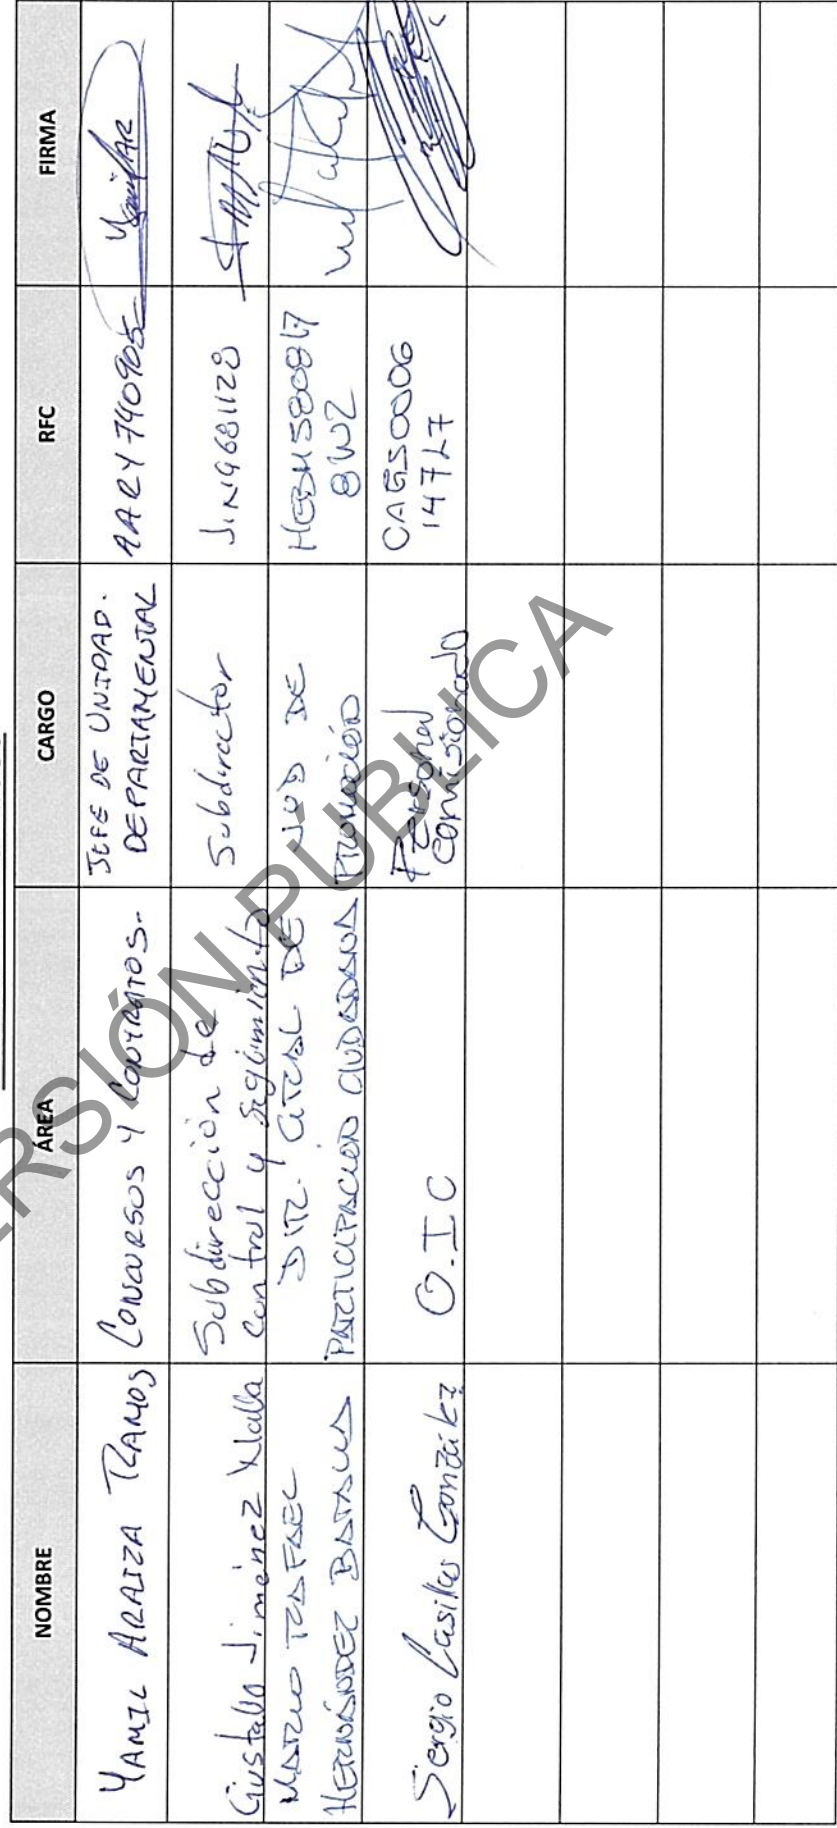 NOMBRE ÁREA CARGO RFC FIRMA
YAMIL ARAIZA RAMOS CONCURSOS Y CONTRATOS. JEFE DE UNIDAD. DEPARTAMENTAL AARY740905
Gustavo Jiménez Subdirección de control y seguimiento Subdirector
MARIO RAFAEL HERNÁNDEZ DIR. GRAL DE PARTICIPACION CIUDADANA JUD DE PROMOCIÓN
Sergio Casillas González O.I.C Personal Comisionado
VERSIÓN PÚBLICA